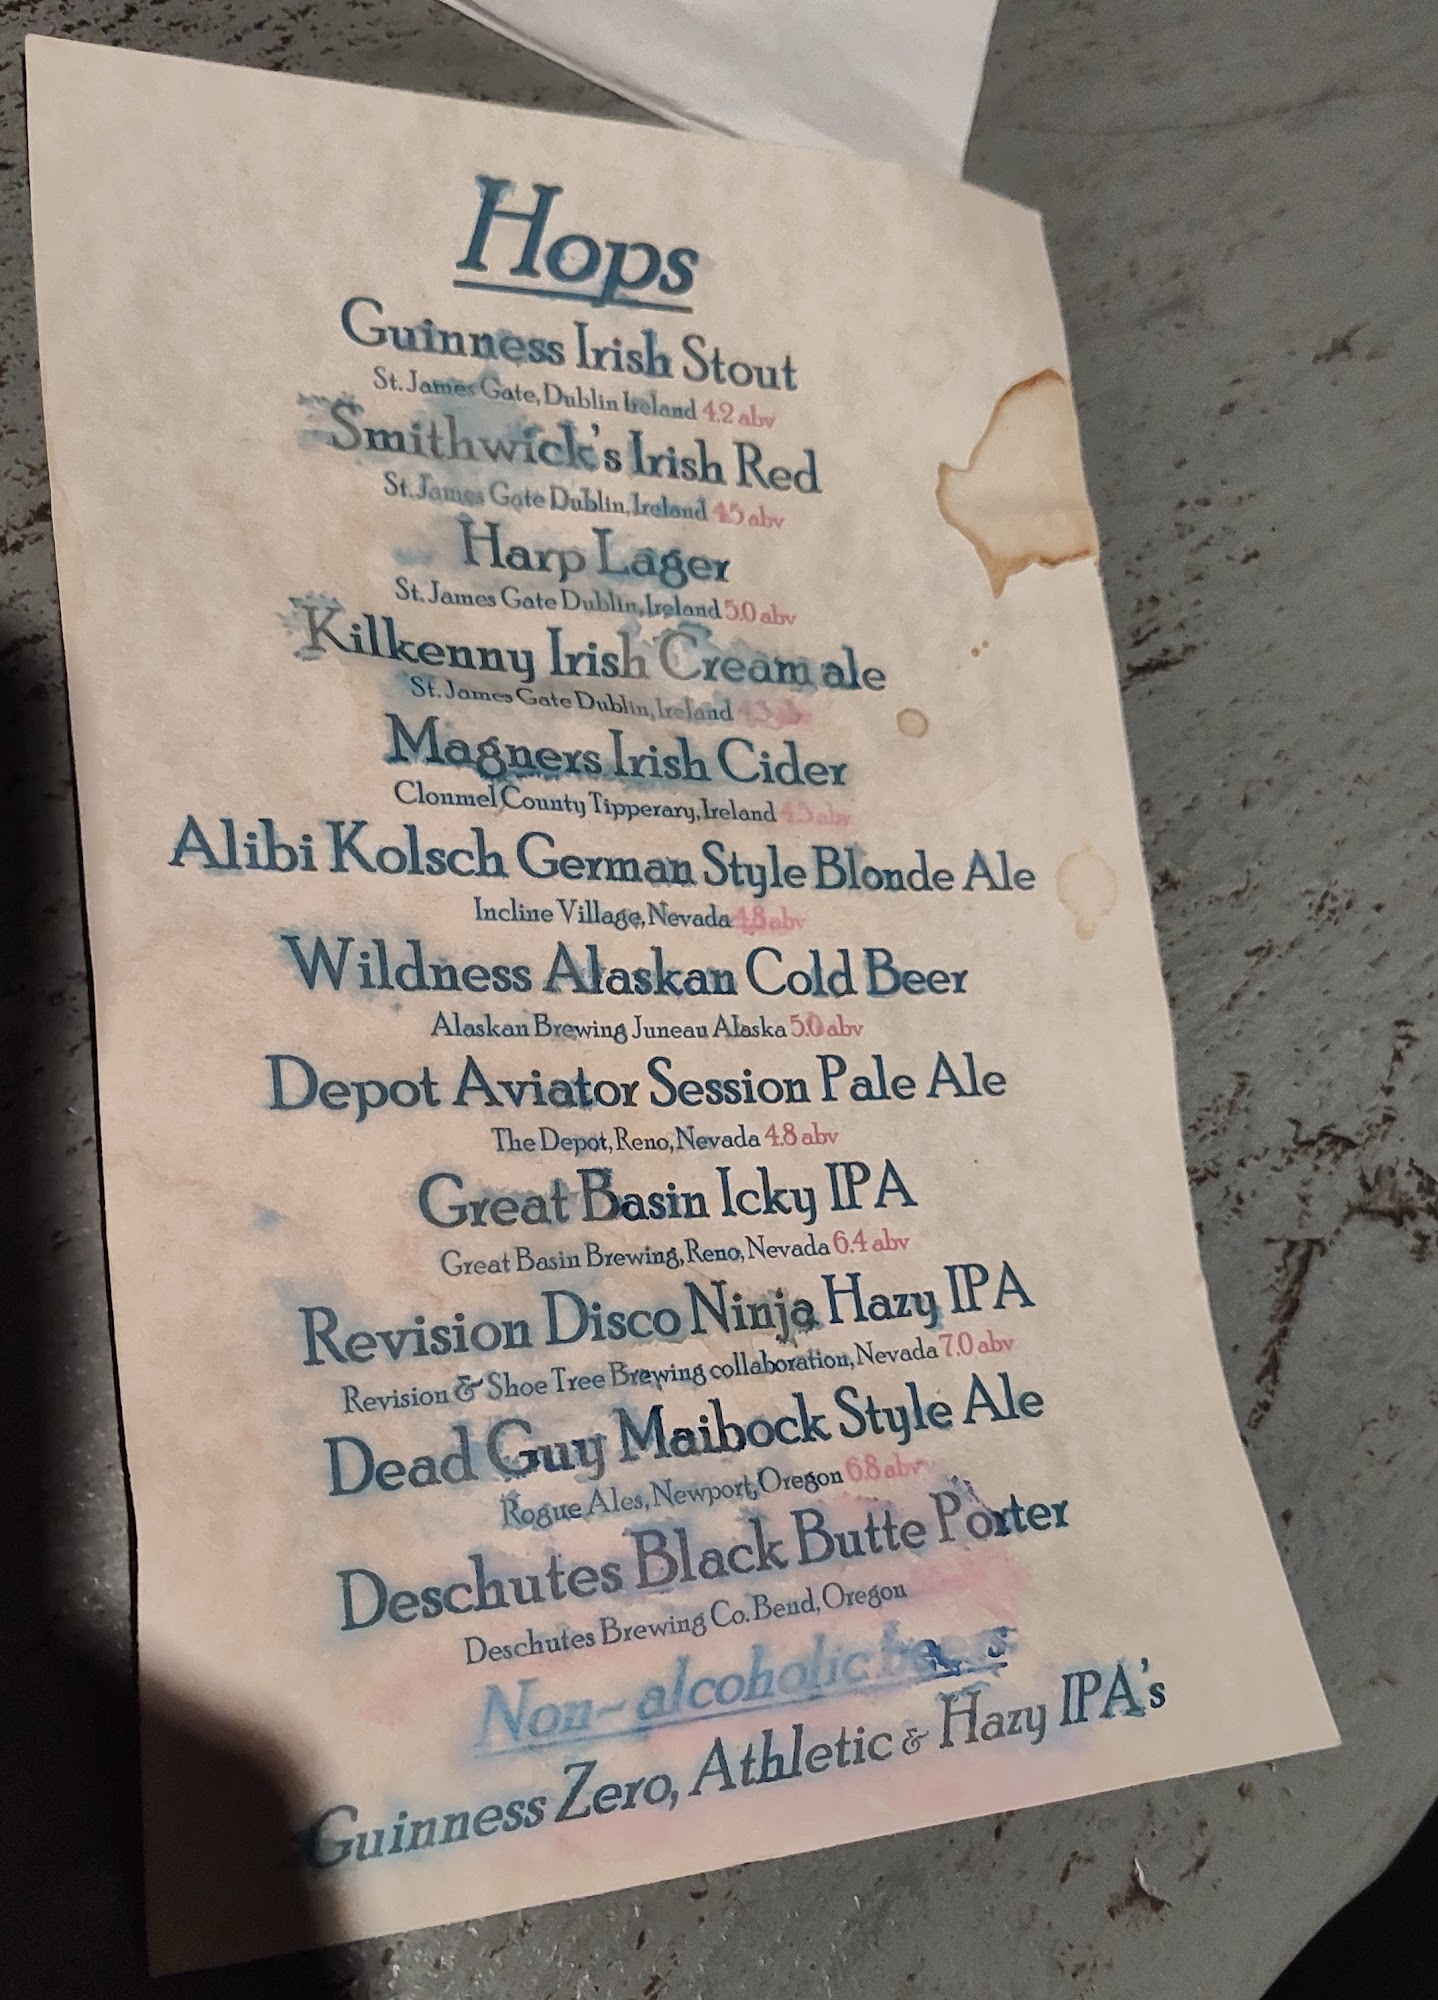 Hops
Guinness Irish Stout
St. James Gate, Dublin Ireland 4.2 abv
Smithwick's Irish Red
St. James Gate Dublin, Ireland 4.5 abv
Harp Lager
St. James Gate Dublin, Ireland 5.0 abv
Kilkenny Irish Cream ale
St. James Gate Dublin, Ireland
Magners Irish Cider
Clonmel County Tipperary, Ireland 4.5 abv
Alibi Kolsch German Style Blonde Ale
Incline Village, Nevada 4.8 abv
Wildness Alaskan Cold Beer
Alaskan Brewing Juneau Alaska 5.0 abv
Depot Aviator Session Pale Ale
The Depot, Reno, Nevada 4.8 abv
Great Basin Icky IPA
Great Basin Brewing, Reno, Nevada 6.4 abv
Revision Disco Ninja Hazy IPA
Revision & Shoe Tree Brewing collaboration, Nevada 7.0 abv
Dead Guy Maibock Style Ale
Rogue Ales, Newport, Oregon 6.8 abv
Deschutes Black Butte Porter
Deschutes Brewing Co. Bend, Oregon
Non-alcoholic beers
Guinness Zero, Athletic & Hazy IPA's